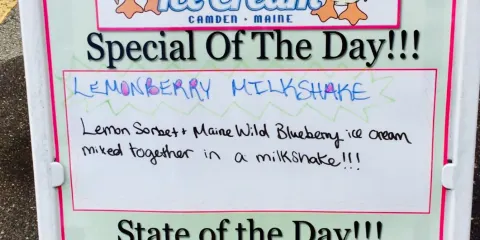 Ice Cream
CAMDEN • MAINE
Special Of The Day!!!
LEMONBERRY MILKSHAKE
Lemon Sorbet + Maine Wild Blueberry ice cream
mixed together in a milkshake!!!
State of the Day!!!